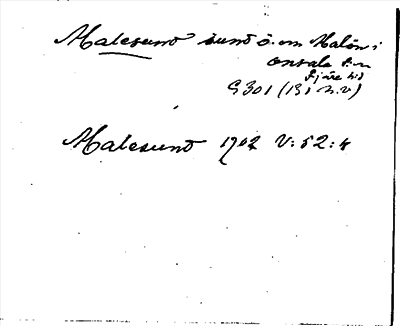 Malesund sund ö. om Malön i
Onsala s:n
Fjäre hd
G301 (131 n.v)
Malesund 1902 V: 52: 4